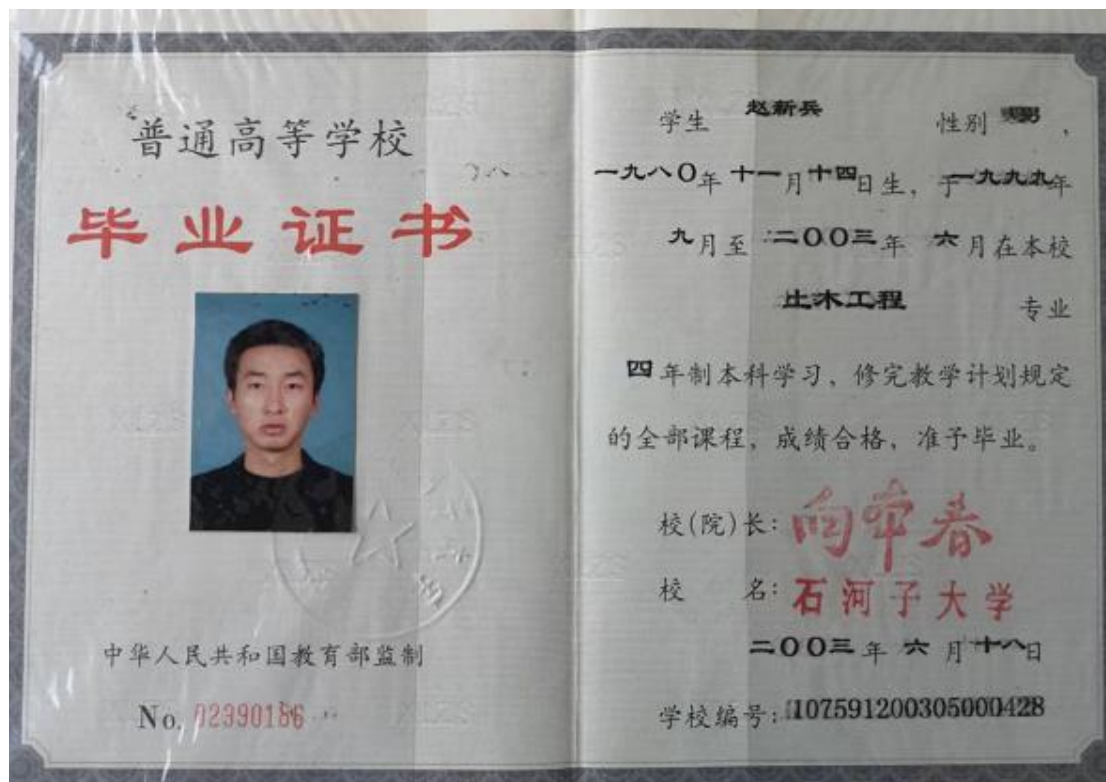 普通高等学校
毕业证书
中华人民共和国教育部监制
No. 02390186
学生 赵新兵 性别 男,
一九八〇年十一月十四日生, 于一九九九年
九月至二〇〇三年 六月在本校
土木工程 专业
四年制本科学习, 修完教学计划规定
的全部课程, 成绩合格, 准予毕业。
校(院)长:
校 名: 石河子大学
二〇〇三年 六月十八日
学校编号: 107591200305000428